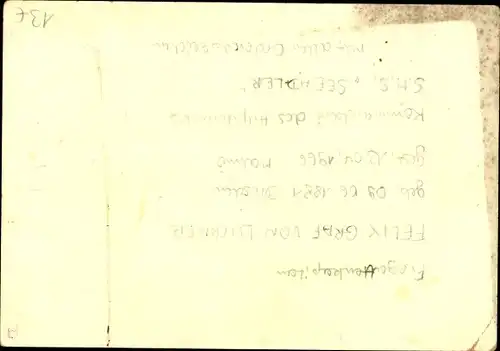 Fregattenkapitän
FELIX GRAF VON LUCKNER
geb 09 06 1881 Dresden
gest. 13.04.1966 Malmö
Kommandant des Hilfskreuzers
S.M.S. "SEEADLER"
mit allen Ordensspangen
13€
A